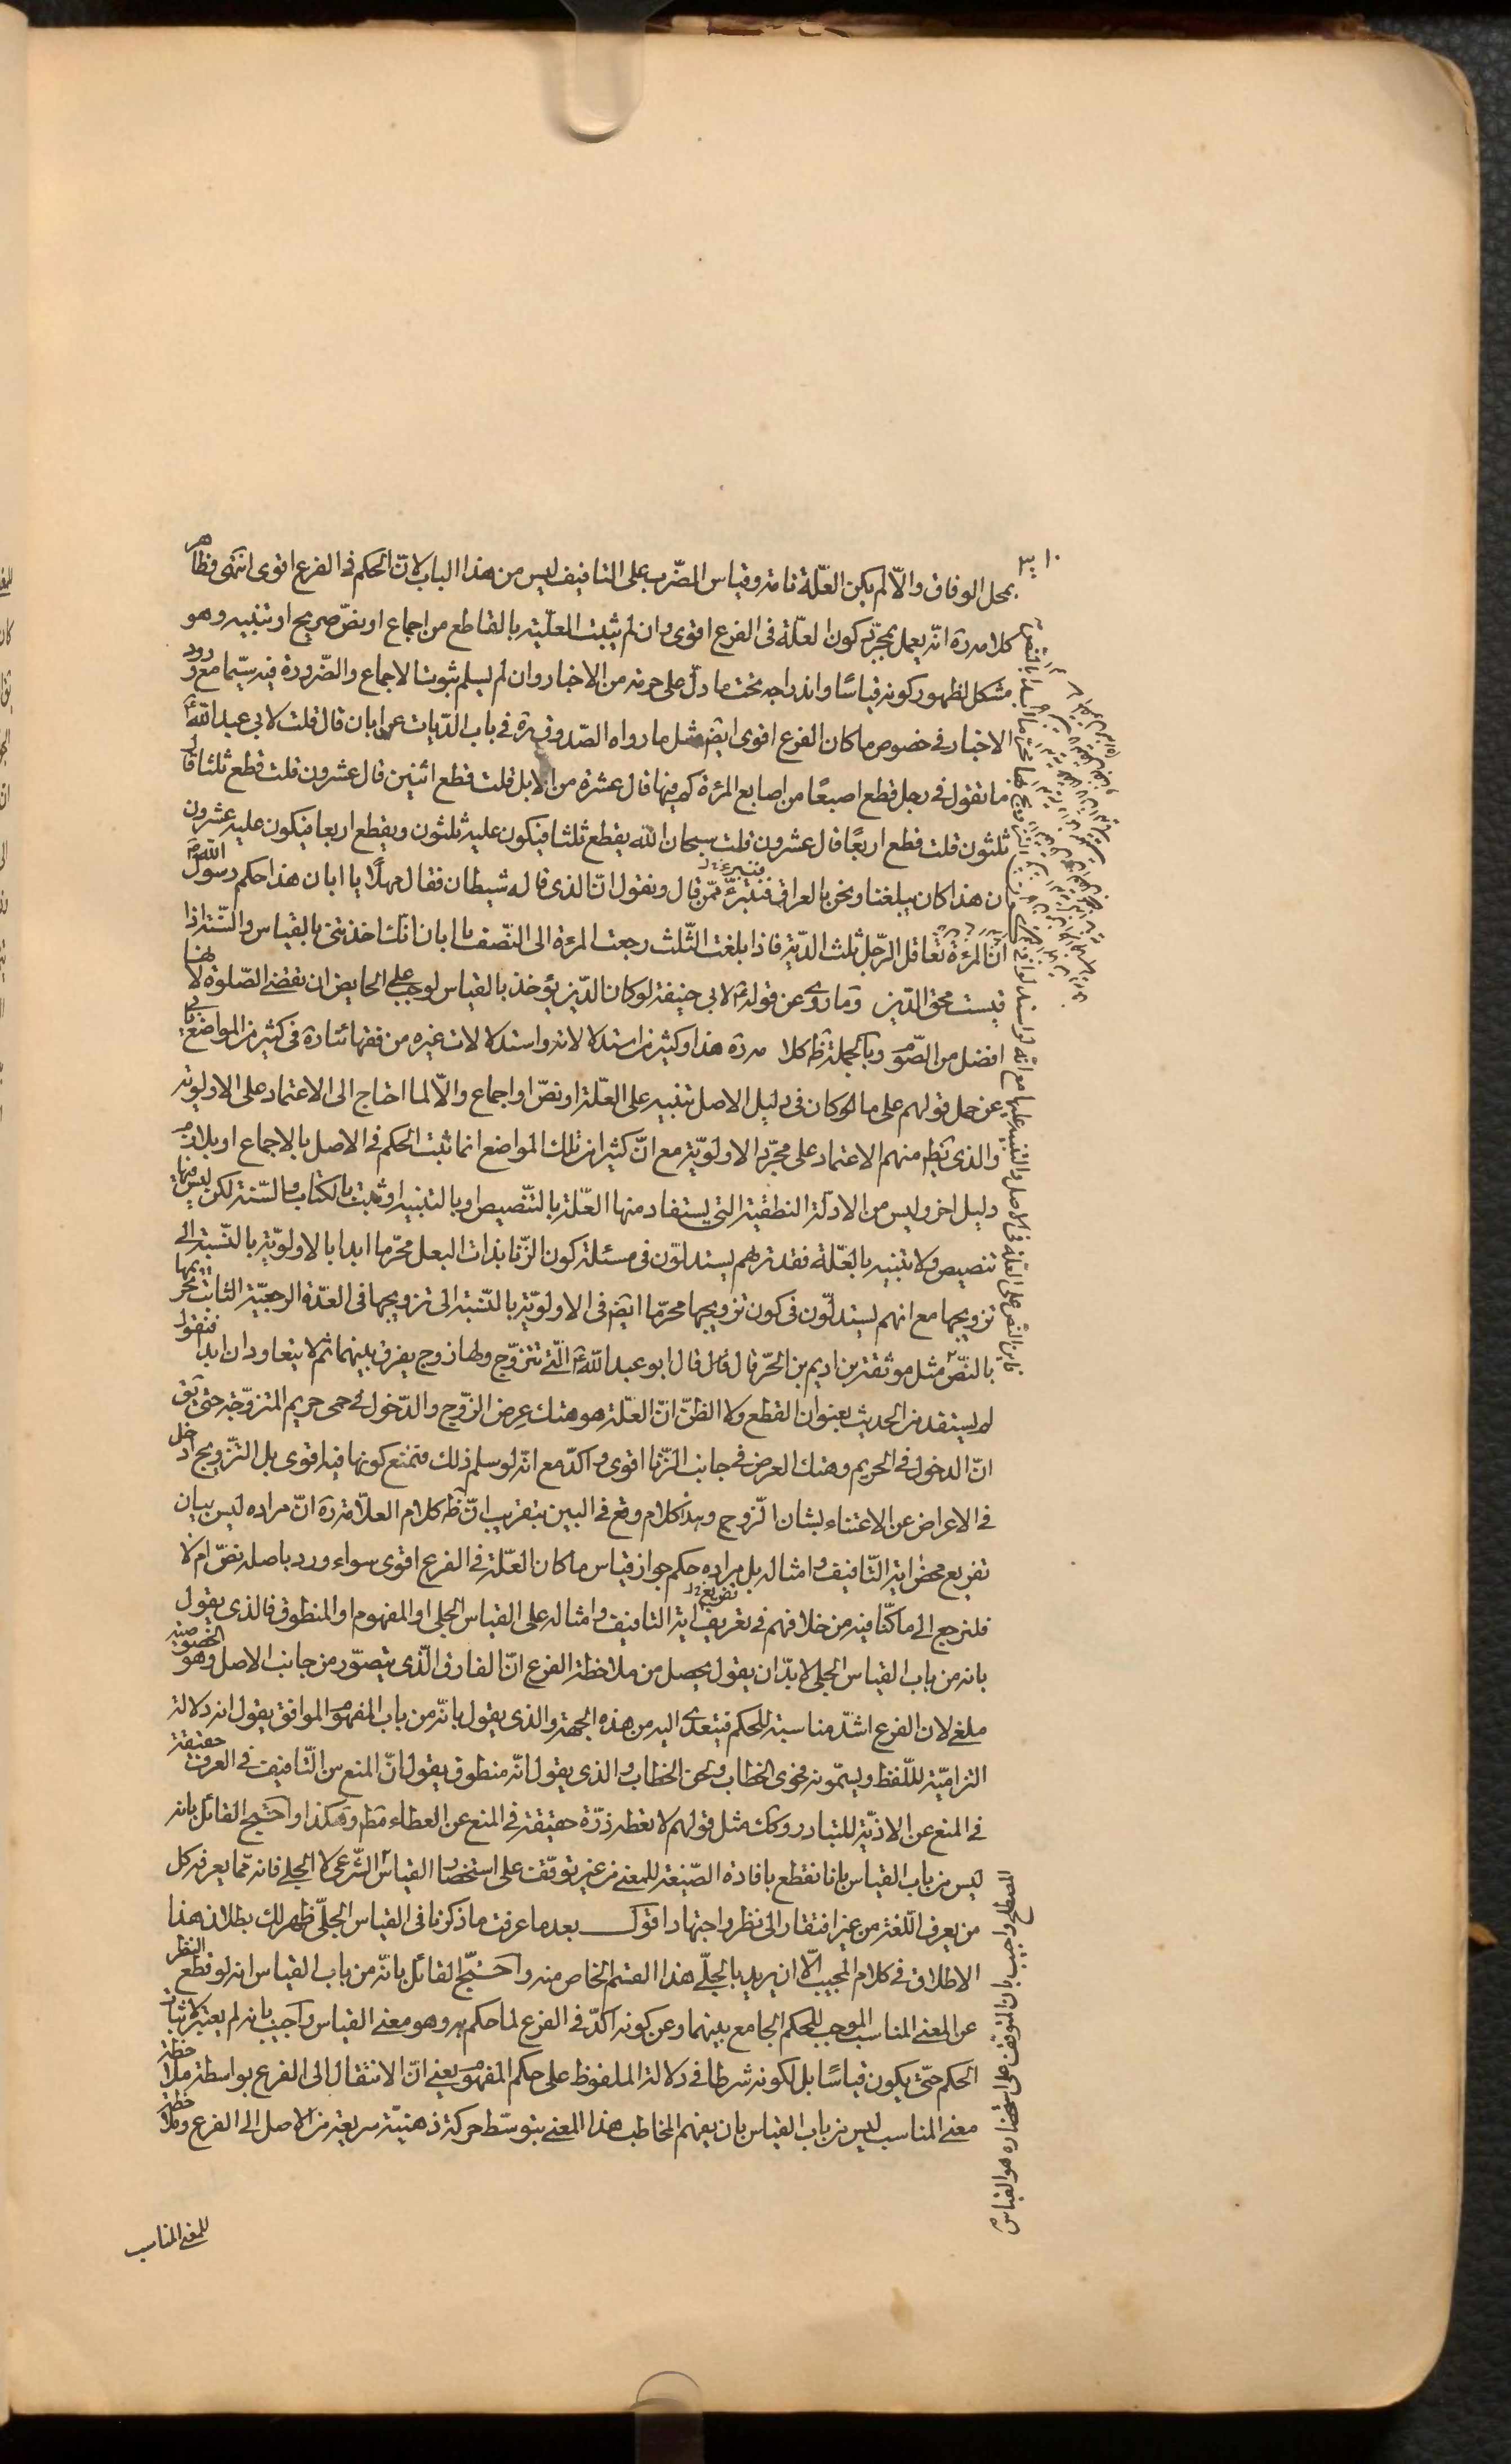 بمحل الوفاق والّا لم يكن العلّة تامة وقياس الضّرب على التافيف ليس من هذا الباب لانّ الحكم فى الفرع اقوى انتهى وظاهر
كلامه ره انّه يعمل بمجرّد كون العلّة فى الفرع اقوى وان لم يثبت العلّية بالقاطع من اجماع او نصّ صريح او تنبيه وهو
مشكل لظهور كونه قياسًا واندراجه تحت ما دلّ على حرمته من الاخبار وان لم يسلم ثبوت الاجماع والضّرورة فيه سيّما مع ورود
الاخبار فى خصوص ما كان الفرع اقوى ايضا مثل ما رواه الصّدوق ره فى باب الدّيات عن ابان قال قلت لابى عبد اللّه ع
ما تقول فى رجل قطع اصبعًا من اصابع المرءة كم فيها قال عشرة من الابل قلت قطع اثنين قال عشرون قلت قطع ثلثا قال
ثلثون قلت قطع اربعًا قال عشرون قلت سبحان اللّه يقطع ثلثا فيكون عليه ثلثون ويقطع اربعا فيكون عليه عشرون
ان هذا كان يبلغنا ونحن بالعراق فنتبرّء ممّن قال ونقول انّ الذى قاله شيطان فقال مهلًا يا ابان هذا حكم رسول اللّه ص
انّ المرءة تعاقل الرّجل ثلث الدّية فاذا بلغت الثّلث رجعت المرءة الى النّصف يا ابان انّك اخذتنى بالقياس والسّنة اذا
قيست محق الدّين وما روى عن قوله ع لابى حنيفة لو كان الدّين يؤخذ بالقياس لوجب على الحايض ان تقضى الصّلوة لانها
افضل من الصّوم وبالجملة ظ كلامه ره هذا وكثير من استدلالاته واستدلالات غيره من فقهائنا ره فى كثير من المواضع يابى
عن حمل قولهم على ما لو كان فى دليل الاصل تنبيه على العلّة او نصّ او اجماع والّا لما احتاج الى الاعتماد على الاولوية
والذى يظهر منهم الاعتماد على مجرّد الاولويّة مع انّ كثيرا من تلك المواضع انما ثبت الحكم فى الاصل بالاجماع او بلا
دليل اخر وليس من الادلّة النطقية التى يستفاد منها العلّة بالتّنصيص او بالتنبيه او ثبت بالكتاب والسّنة لكن ليس فيها
تنصيص ولا تنبيه بالعلّة فقد تريهم يستدلّون فى مسئلة كون الزّنا بذات البعل محرّما ابدا بالاولويّة بالنّسبة الى
تزويجها مع انهم يستدلّون فى كون تزويجها محرّما ايضا فى الاولويّة بالنّسبة الى تزويجها فى العدّة الرجعيّة الثابت تحريمها
بالنّصّ مثل موثقة بن اديم بن الحرّ قال قال ابو عبد اللّه ع الّتى تتزوّج ولها زوج يفرق بينهما ثم لا يتعاودان ابدا فنقول
لم يستفد من الحديث بعنوان القطع ولا الظنّ انّ العلّة هو هتك عرض الزّوج والدّخول فى حمى حريم المتزوّجة حتى يق
انّ الدخول فى الحريم وهتك العرض فى جانب الزّنا اقوى واكدّ مع انّه لو سلم ذلك فنمنع كونها فيه اقوى بل التّزويج ادخل
فى الاعراض عن الاعتناء بشان الزّوج وهذا كلام وقع فى البين بتقريب انّ ظ كلام العلّامة ره انّ مراده ليس بيان
تفريع محض اية التّافيف وامثاله بل مراده حكم جواز قياس ما كان العلّة فى الفرع اقوى سواء ورد باصله نصّ ام لا
فلنرجع الى ما كنّا فيه من خلافهم فى تعريف اية التافيف وامثاله على القياس الجلى او المفهوم او المنطوق فالذى يقول
بانه من باب القياس الجلى لا بدّ ان يقول يحصل من ملاحظة الفرع انّ الفارق الّذى يتصوّر من جانب الاصل وهو الخصوصية
ملغى لان الفرع اشدّ مناسبة للحكم فيتعدّى اليه من هذه الجهة والذى يقول بانّه من باب المفهوم الموافق يقول انه دلالة
التزاميّة للّفظ ويسمّونه فحوى الخطاب ولحن الخطاب والذى يقول انّه منطوق يقول انّ المنع من التّافيف فى العرف حقيقة
فى المنع عن الاذيّة للتبادر وكك مثل قولهم لا تعطه ذرّة حقيقة فى المنع عن العطاء مطلقا وهكذا واحتج القائل بانه
ليس من باب القياس بانا نقطع بافادة الصّيغة للمعنى من غير توقّف على استحضار القياس الشّرعى لا الجلى فانه ممّا يعرفه كل
من يعرف اللّغة من غير افتقار الى نظر واجتهاد اقول بعد ما عرفت ما ذكرنا فى القياس الجلىّ ظهر لك بطلان هذا
الاطلاق فى كلام المجيب الّا ان يريد بالجلّى هذا القسم الخاص منه واحتجّ القائل بانّه من باب القياس انه لو قطع النظر
عن المعنى المناسب الموجب للحكم الجامع بينهما وعن كونه اكدّ فى الفرع لما حكم به وهو معنى القياس واجيب بانه لم يعتبر لاثبات
الحكم حتّى يكون قياسًا بل لكونه شرطا فى دلالة الملفوظ على حكم المفهوم يعنى انّ الانتقال الى الفرع بواسطة ملاحظة
معنى المناسب ليس من باب القياس بان يفهم المخاطب هذا المعنى بتوسّط حركة ذهنيّة سريعة من الاصل الى الفرع وملاحظة
للمعنى المناسب
المصطلح واجيب بان المتوقف على استحضاره هو القياس